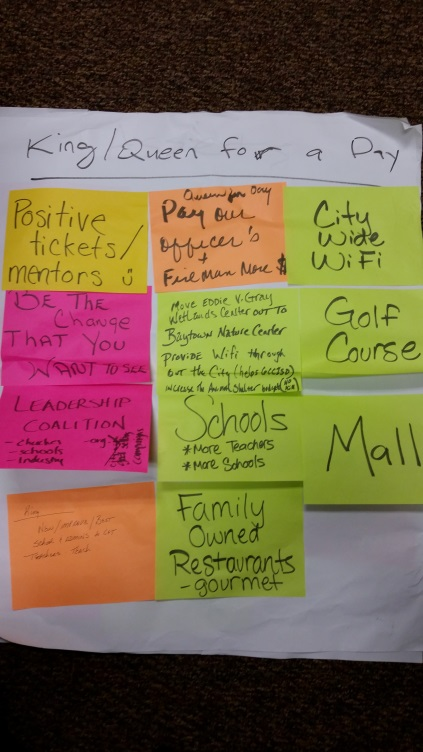 King/Queen for a Day
Positive
tickets/
mentors
Queen for Day
Pay our
officer's
+
Fire Man More $
City
Wide
WiFi
BE THE
Change
THAT YOU
WANT TO SEE
Move Eddie V. Gray
Wetlands Center out To
Baytown Nature Center
Provide Wifi through
out the City (helps GCCISD)
increase the Animal Shelter budget
Golf
Course
LEADERSHIP
COALITION
- churches
- schools
- industry
- org
Schools
*More Teachers
*More Schools
Mall
King
Teachers Teach
Family
Owned
Restaurants
- gourmet